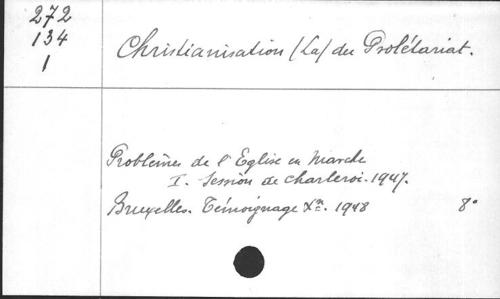 272
134
1
Christianisation (La) du Prolétariat.
Problèmes de l'Eglise en Marche
I. Session de Charleroi. 1947.
Bruxelles. Témoignage Xn. 1948 8°